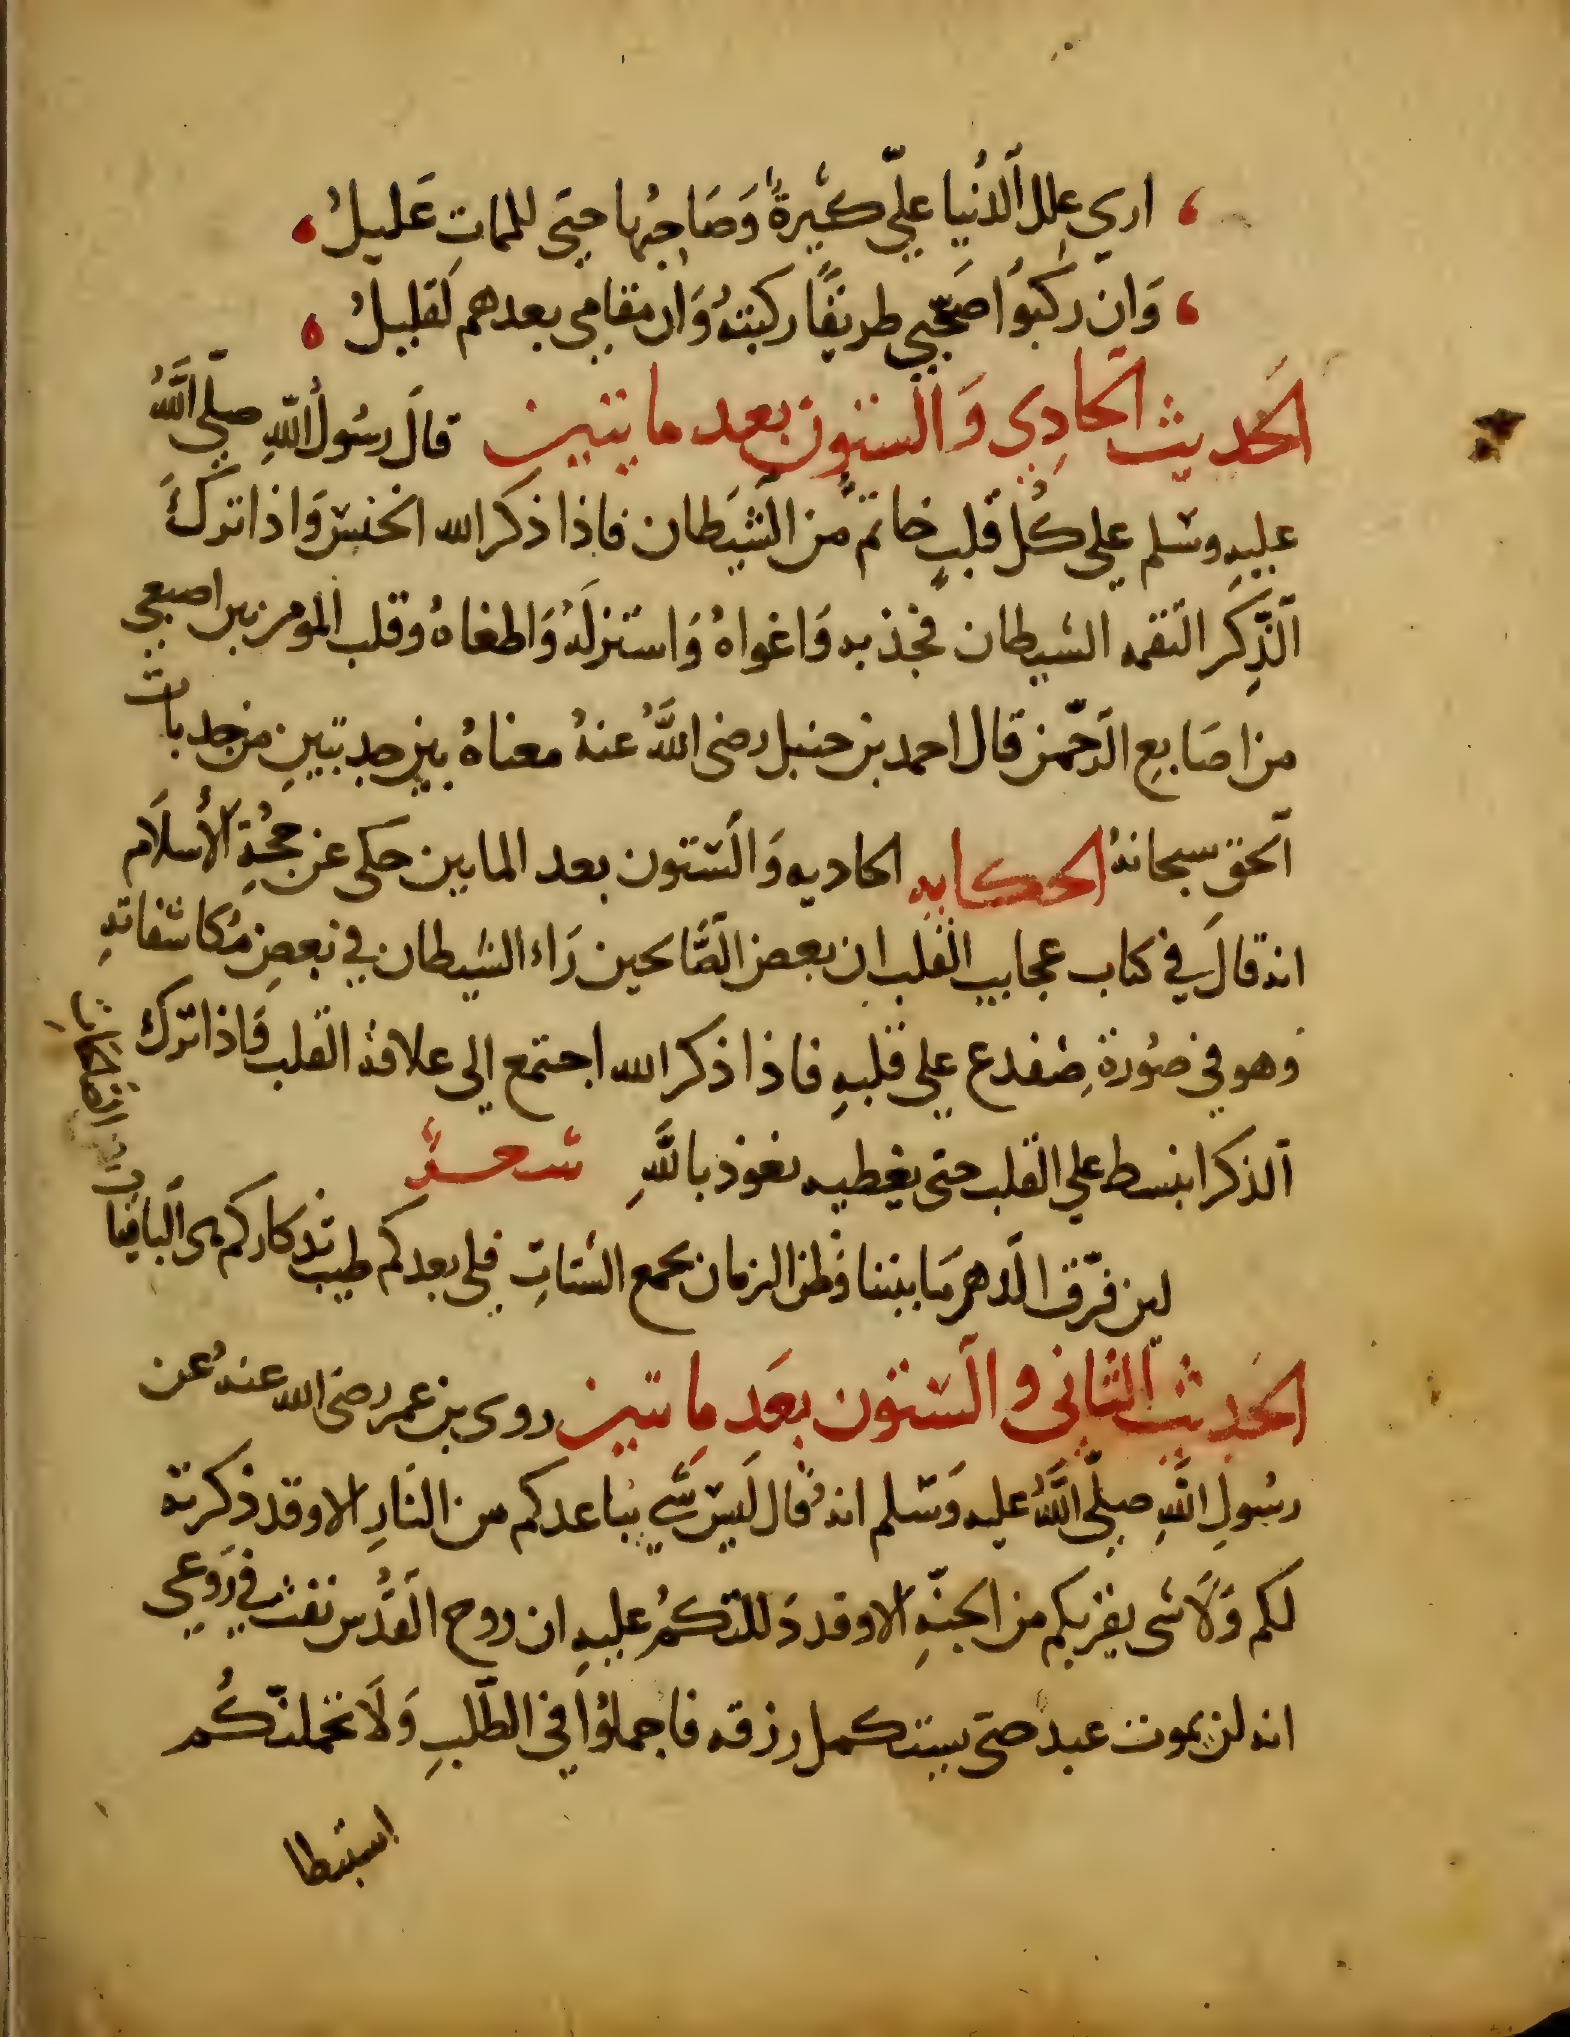 اري علل الدنيا علي كثيرة وصاحبها حتى للمات عليل
وان ركبوا صحبي طريقا ركبته وان مقامي بعدهم لقليل
الحديث الحادي والستون بعد مايتين قال رسول الله صلي الله
عليه وسلم علي كل قلب خاتم من الشيطان فاذا ذكر الله انخنس واذا ترك
الذكر التقمه الشيطان فجذبه واغواه واستنزله واطغاه وقلب المومن بين اصبعي
من اصابع الرحمن قال احمد بن حنبل رضى الله عنه معناه بين جذبتين من جذبات
الحق سبحانه الحكايه الحاديه والستون بعد المايين حكى عن حجة الاسلام
انه قال في كتاب عجايب القلب ان بعض الصالحين راء الشيطان في بعض مكاشفاته
وهو في صورة ضفدع علي قلبه فاذا ذكر الله اجتمع الى علاقة القلب فاذا ترك
الذكر انبسط علي القلب حتى يغطيه نعوذ بالله شعر
لين فرق الدهر ما بيننا وظن الزمان بجمع الشتات فلي بعدكم طيب تذكاركم
الحديث الثانى والستون بعد مايتين روى بن عمر رضى الله عنه عن
رسول الله صلي الله عليه وسلم انه قال ليس شي يباعدكم من النار الا وقد ذكرته
لكم ولا شى يقربكم من الجنة الا وقد دللتكم عليه ان روح القدس نفث في روعي
انه لن يموت عبد حتى يستكمل رزقه فاجملوا في الطلب ولا تحملنكم
استبطا